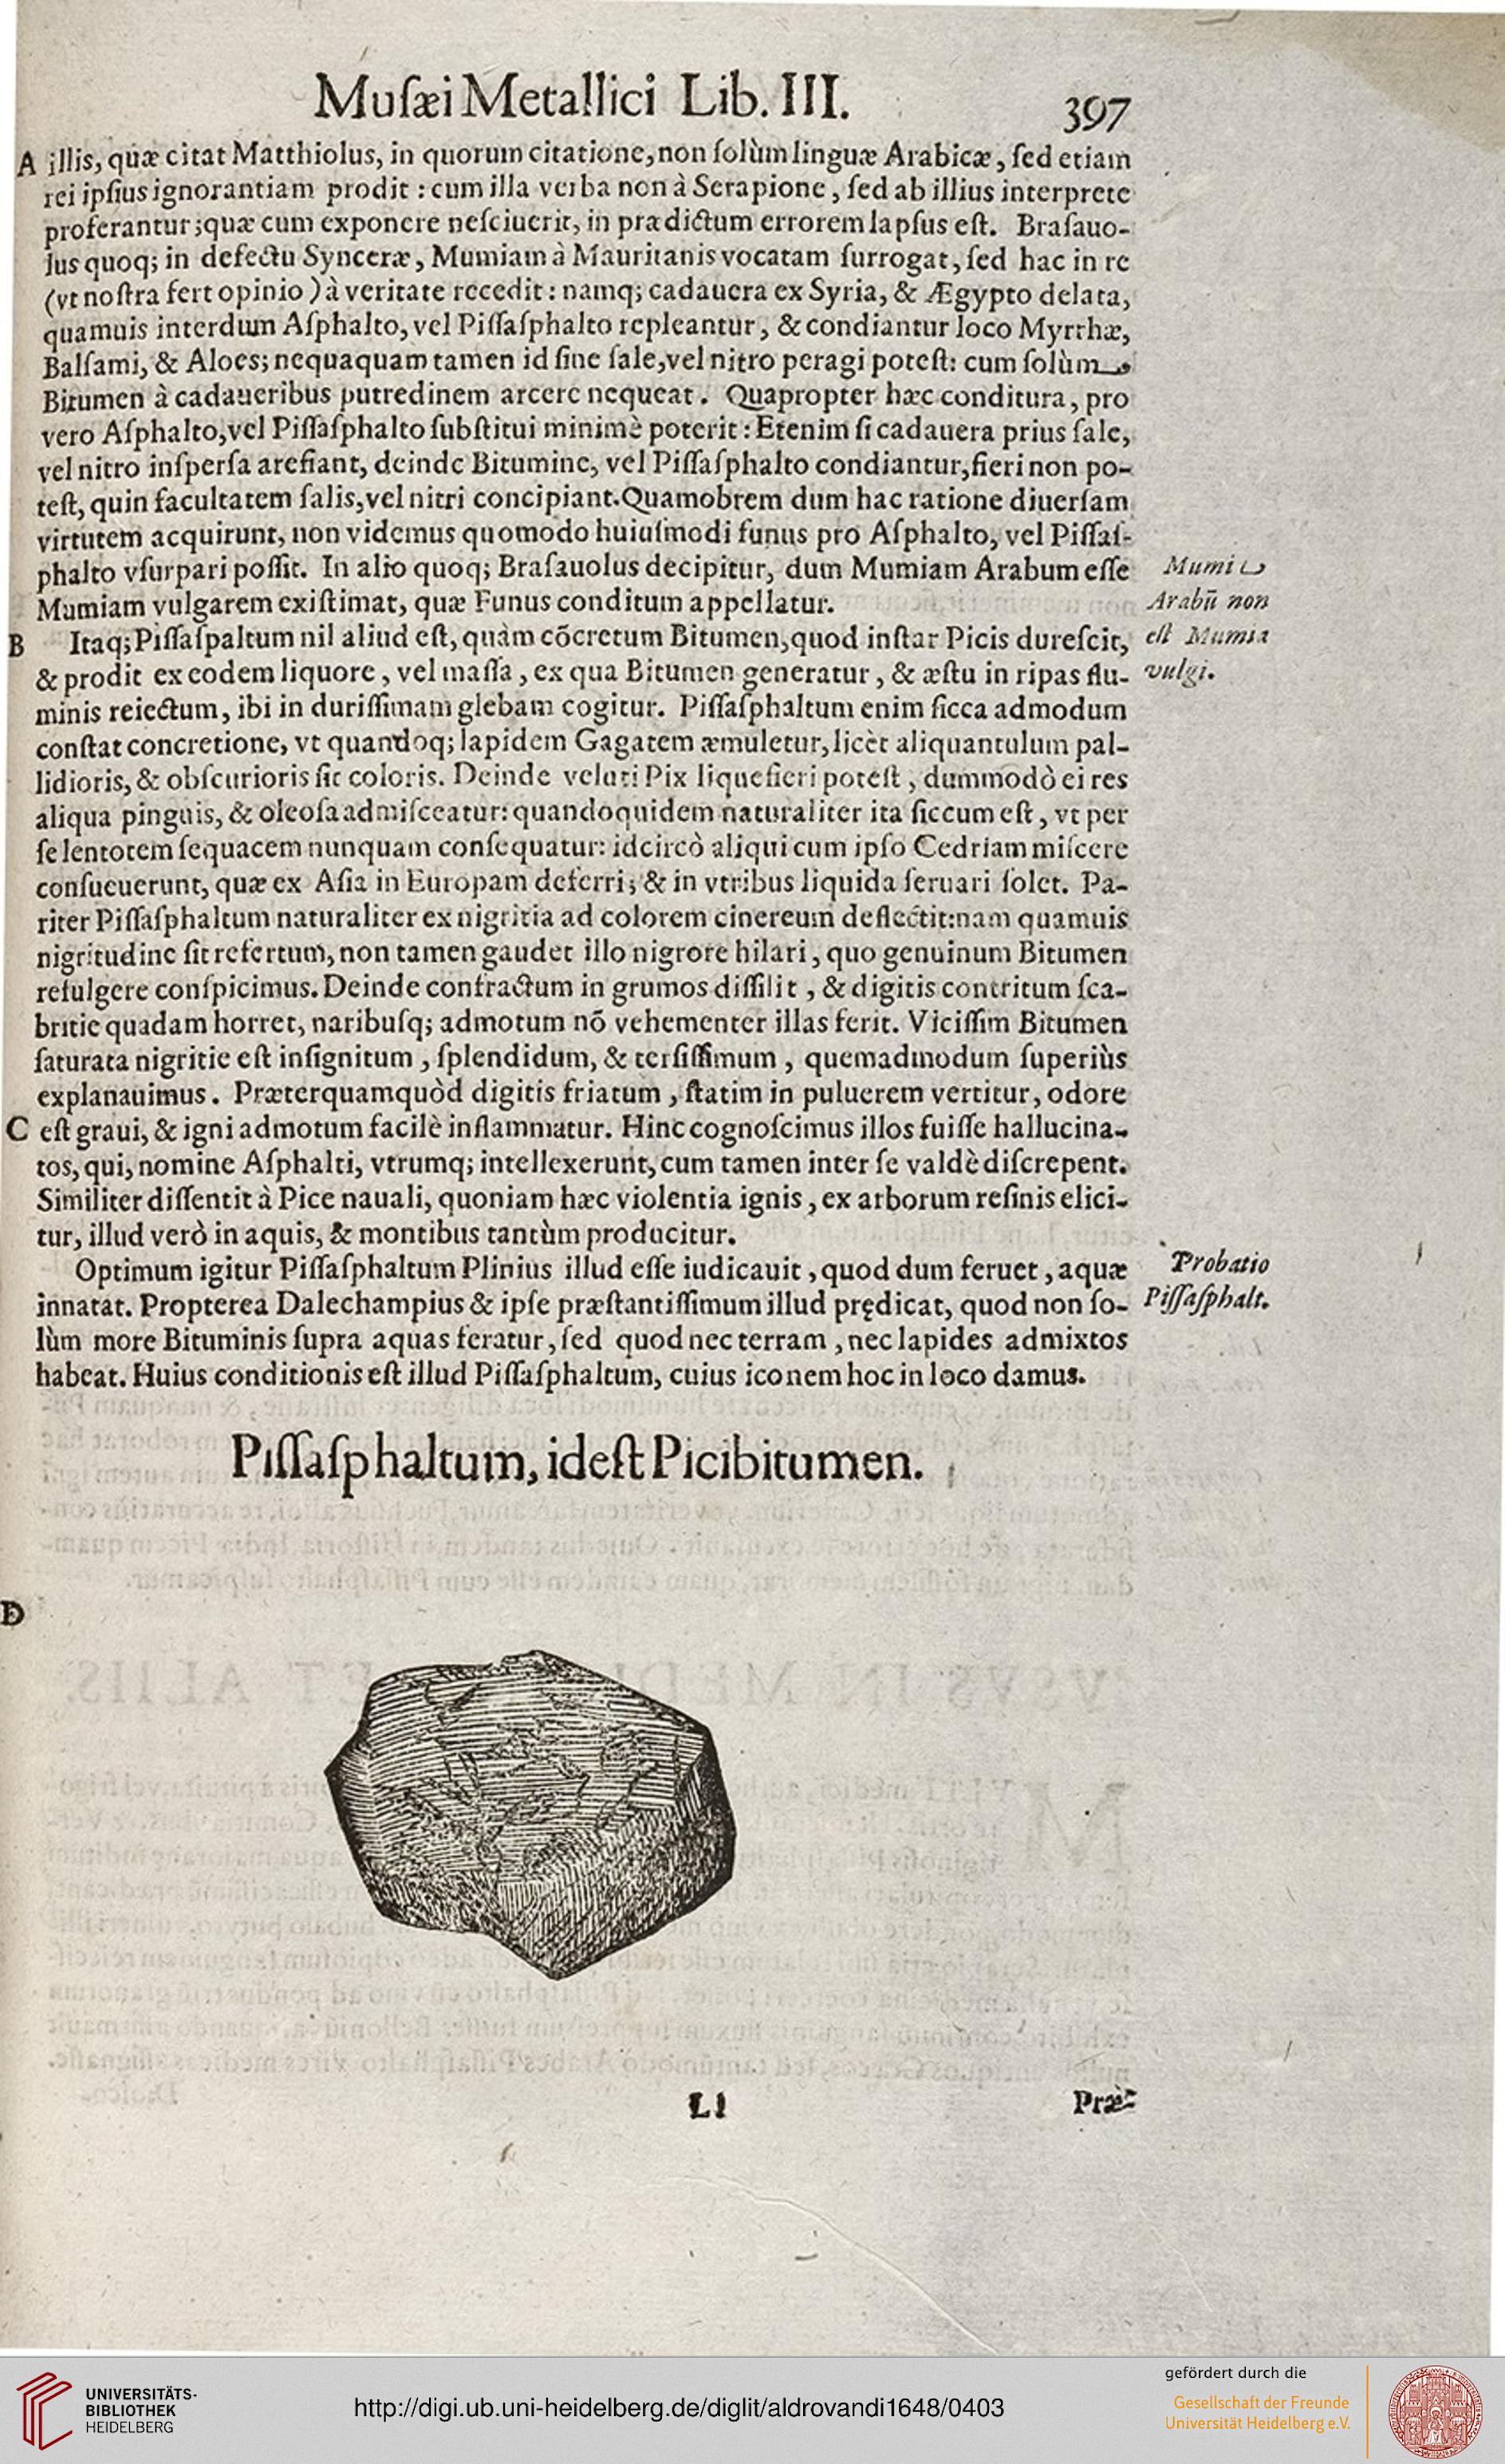 Muſæi Metallici Lib. III. 397
A illis, quæ citat Matthiolus, in quorum citatione, non ſolùm linguæ Arabicæ, ſed etiam
rei ipſius ignorantiam prodit : cum illa verba non à Serapione, ſed ab illius interprete
proferantur; quæ cum exponere neſciuerit, in prædictum errorem lapſus eſt. Braſauo-
lus quoq; in defectu Synceræ, Mumiam à Mauritanis vocatam ſurrogat, ſed hac in re
(vt noſtra fert opinio) à veritate recedit: namq; cadauera ex Syria, & Ægypto delata,
quamuis interdum Aſphalto, vel Piſſaſphalto repleantur, & condiantur loco Myrrhæ,
Balſami, & Aloes; nequaquam tamen id ſine ſale, vel nitro peragi poteſt: cum ſolùm
Bitumen à cadaueribus putredinem arcere nequeat. Quapropter hæc conditura, pro
vero Aſphalto, vel Piſſaſphalto ſubſtitui minimè poterit: Etenim ſi cadauera prius ſale,
vel nitro inſperſa arefiant, deinde Bitumine, vel Piſſaſphalto condiantur, fieri non po-
teſt, quin facultatem ſalis, vel nitri concipiant. Quamobrem dum hac ratione diuerſam
virtutem acquirunt, non videmus quomodo huiuſmodi funus pro Aſphalto, vel Piſſaſ-
phalto vſurpari poſſit. In alio quoq; Braſauolus decipitur, dum Mumiam Arabum eſſe
Mumiam vulgarem exiſtimat, quæ Funus conditum appellatur.
Mumia
Arabũ non
eſt Mumia
vulgi.
B Itaq; Piſſaſpaltum nil aliud eſt, quàm cõcretum Bitumen, quod inſtar Picis dureſcit,
& prodit ex eodem liquore, vel maſſa, ex qua Bitumen generatur, & æſtu in ripas flu-
minis reiectum, ibi in duriſſimam glebam cogitur. Piſſaſphaltum enim ſicca admodum
conſtat concretione, vt quandoq; lapidem Gagatem æmuletur, licèt aliquantulum pal-
lidioris, & obſcurioris ſit coloris. Deinde veluti Pix liquefieri poteſt, dummodò ei res
aliqua pinguis, & oleoſa admiſceatur: quandoquidem naturaliter ita ſiccum eſt, vt per
ſe lentorem ſequacem nunquam conſequatur: idcircò aliqui cum ipſo Cedriam miſcere
conſueuerunt, quæ ex Aſia in Europam deferri; & in vtribus liquida ſeruari ſolet. Pa-
riter Piſſaſphaltum naturaliter ex nigritia ad colorem cinereum deflectit: nam quamuis
nigritudine ſit refertum, non tamen gaudet illo nigrore hilari, quo genuinum Bitumen
refulgere conſpicimus. Deinde confractum in grumos diſſilit, & digitis contritum ſca-
britie quadam horret, naribuſq; admotum nõ vehementer illas ferit. Viciſſim Bitumen
ſaturata nigritie eſt inſignitum, ſplendidum, & terſiſſimum, quemadmodum ſuperiùs
explanauimus. Præterquamquòd digitis friatum, ſtatim in puluerem vertitur, odore
C eſt graui, & igni admotum facilè inflammatur. Hinc cognoſcimus illos fuiſſe hallucina-
tos, qui, nomine Aſphalti, vtrumq; intellexerunt, cum tamen inter ſe valdè diſcrepent.
Similiter diſſentit à Pice nauali, quoniam hæc violentia ignis, ex arborum reſinis elici-
tur, illud verò in aquis, & montibus tantùm producitur.
Optimum igitur Piſſaſphaltum Plinius illud eſſe iudicauit, quod dum feruet, aquæ
innatat. Propterea Dalechampius & ipſe præſtantiſſimum illud prędicat, quod non ſo-
lùm more Bituminis ſupra aquas feratur, ſed quod nec terram, nec lapides admixtos
habeat. Huius conditionis eſt illud Piſſaſphaltum, cuius iconem hoc in loco damus.
Probatio
Piſſaſphalt.
Piſſaſphaltum, ideſt Picibitumen.
D
Ll Præ-
UNIVERSITÄTS-
BIBLIOTHEK
HEIDELBERG
http://digi.ub.uni-heidelberg.de/diglit/aldrovandi1648/0403
gefördert durch die
Gesellschaft der Freunde
Universität Heidelberg e.V.